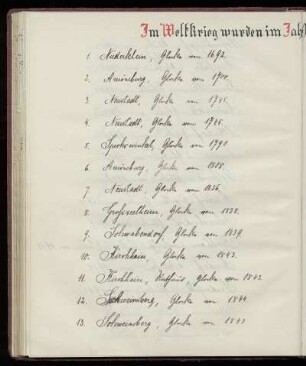 Im Weltkrieg wurden im Jah
1. Niederklein, Glocke von 1692.
2. Amöneburg, Glocke von
3. Neustadt, Glocke von
4. Neustadt, Glocke von
5. Speckswinkel, Glocke von
6. Amöneburg, Glocke von
7. Neustadt, Glocke von 1836.
8. Großseelheim, Glocke von 1838.
9. Schwabendorf, Glocke von 1839
10. Kirchhain, Glocke von 1842.
11. Kirchhain, Glocke von 1842
12. Schweinsberg, Glocke von 1844.
13. Schweinsberg, Glocke von